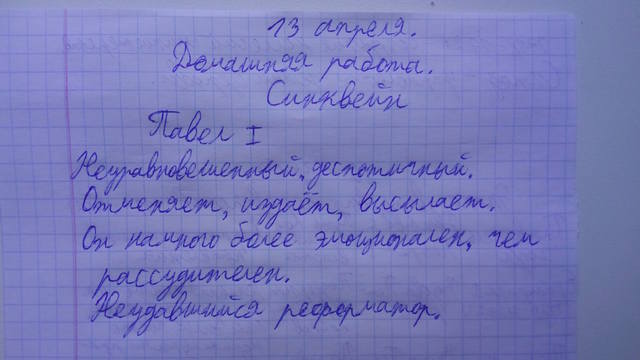 13 апреля.
Домашняя работа.
Синквейн
Павел I
Неуравновешенный, деспотичный.
Отменяет, издаёт, высылает.
Он намного более эмоционален, чем
рассудителен.
Неудавшийся реформатор.